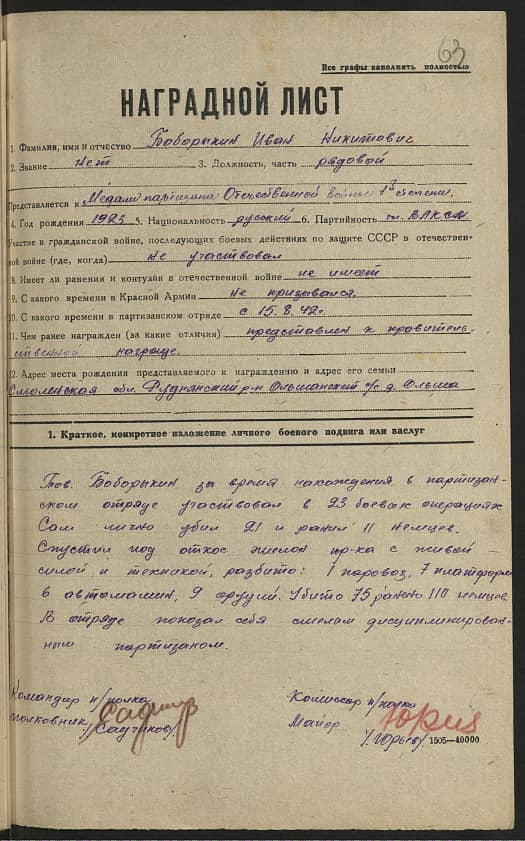 63
Все графы заполнять полностью
НАГРАДНОЙ ЛИСТ
1. Фамилия, имя и отчество Боборыкин Иван Никитович
2. Звание нет 3. Должность, часть рядовой
Представляется к Медали партизана Отечественной войны 1й степени.
4. Год рождения 1923 5. Национальность русский 6. Партийность чл. ВЛКСМ
Участие в гражданской войне, последующих боевых действиях по защите СССР в отечествен-
ной войне (где, когда) не участвовал
8. Имеет ли ранения и контузии в отечественной войне не имеет
9. С какого времени в Красной Армии не призывался.
10. С какого времени в партизанском отряде с 15.8.42г.
11. Чем ранее награжден (за какие отличия) представлен к правитель-
ственной награде.
12. Адрес места рождения представляемого к награждению и адрес его семьи
Смоленская обл. Руднянский р-н Ольшанский с/с д. Ольша
1. Краткое, конкретное изложение личного боевого подвига или заслуг
Тов. Боборыкин за время нахождения в партизан-
ском отряде участвовал в 23 боевых операциях
Сам лично убил 21 и ранил 11 немцев.
Спустил под откос эшелон пр-ка с живой
силой и техникой, разбито: 1 паровоз, 7 платформ
8 автомашин, 9 орудий. Убито 75 ранено 110 немцев
В отряде показал себя смелым дисциплинирован-
ным партизаном.
Командир п/полка Комиссар п/полка
полковник Майор
/Садчиков/ /Юрьев/ 1505—40000